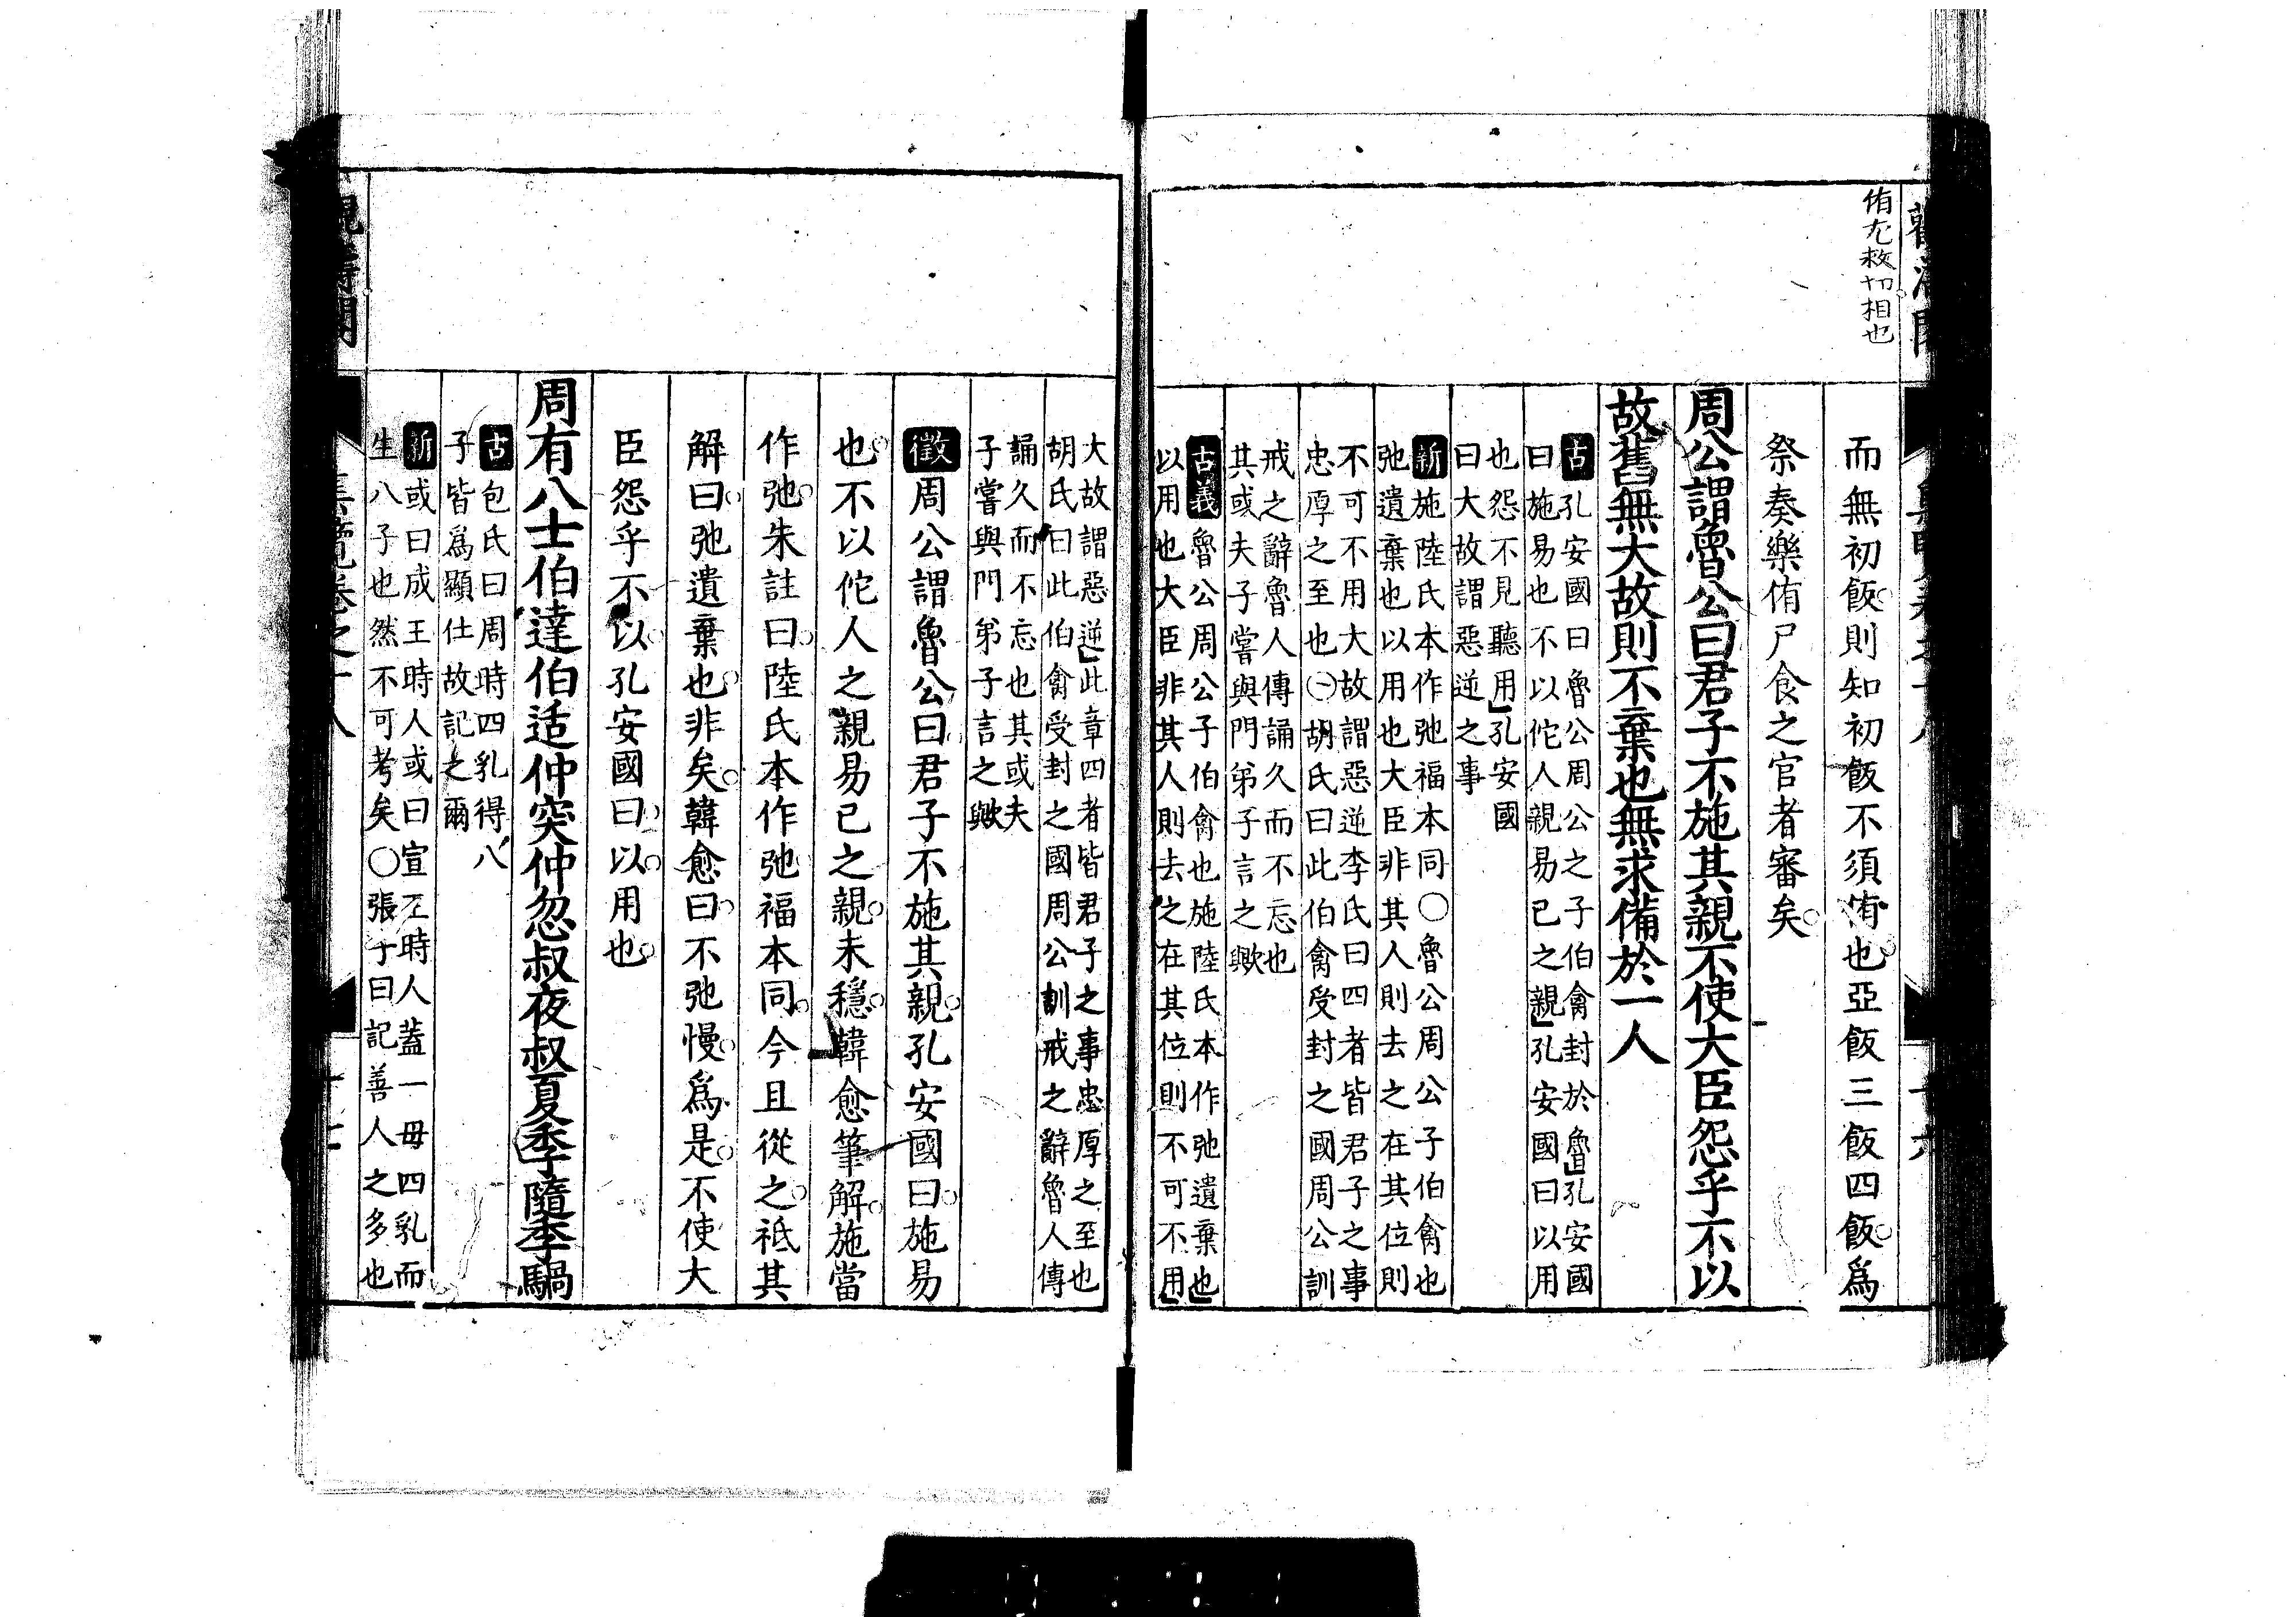 侑尢救切相也
而無初飯則知初飯不須侑也亞飯三飯四飯爲
祭奏樂侑尸食之官者審矣
周公謂魯公曰君子不施其親不使大臣怨乎不以
故舊無大故則不棄也無求備於一人
古孔安國曰魯公周公之子伯禽封於魯」孔安國
曰施易也不以佗人親易己之親」孔安國曰以用
也怨不見聽用」孔安國
曰大故謂惡逆之事
新施陸氏本作弛福本同〇魯公周公子伯禽也
弛遺棄也以用也大臣非其人則去之在其位則
不可不用大故謂惡逆李氏曰四者皆君子之事
忠厚之至也㊀胡氏曰此伯禽受封之國周公訓
戒之辭魯人傳誦久而不忘也
其或夫子嘗與門弟子言之歟
古義魯公周公子伯禽也施陸氏本作弛遺棄也」
以用也大臣非其人則去之在其位則不可不用」
大故謂惡逆」此章四者皆君子之事忠厚之至也
胡氏曰此伯禽受封之國周公訓戒之辭魯人傳
誦久而不忘也其或夫
子嘗與門弟子言之歟
徵周公謂魯公曰君子不施其親孔安國曰施易
也不以佗人之親易己之親未穩韓愈筆解施當
作弛朱註曰陸氏本作弛福本同今且從之祗其
解曰弛遺棄也非矣韓愈曰不弛慢爲是不使大
臣怨乎不以孔安國曰以用也
周有八士伯達伯适仲突仲忽叔夜叔夏季隨季騧
古包氏曰周時四乳得八
子皆爲顯仕故記之爾
新或曰成王時人或曰宣王時人蓋一母四乳而
生八子也然不可考矣〇張子曰記善人之多也